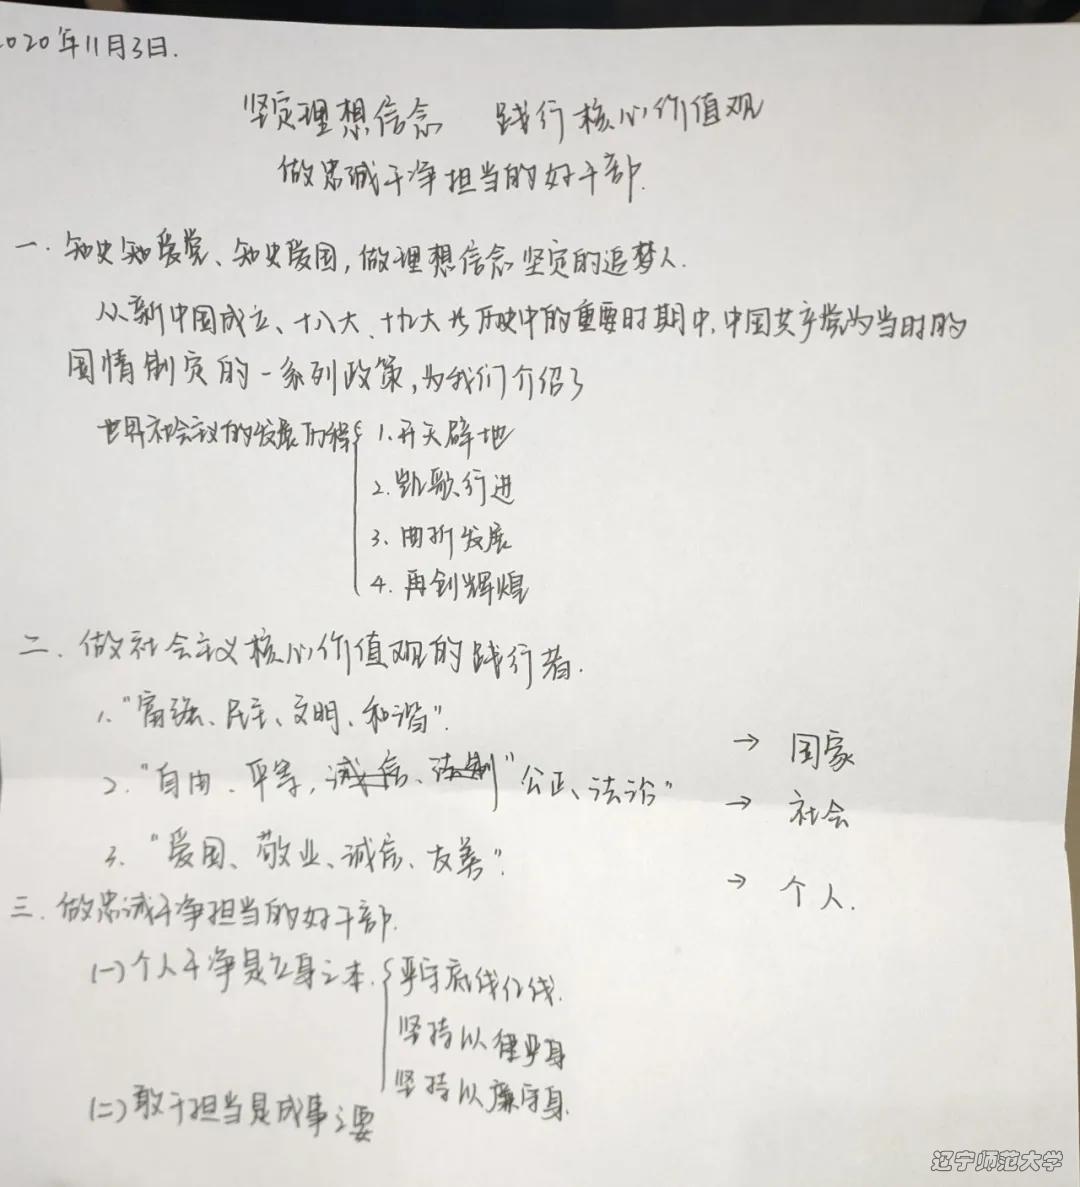 2020年11月3日.
坚定理想信念 践行核心价值观
做忠诚干净担当的好干部.
一. 知史知爱党、知史爱国,做理想信念坚定的追梦人.
从新中国成立、十八大、十九大等历史中的重要时期中,中国共产党为当时的
国情制定的一系列政策,为我们介绍了
世界社会主义的发展历程
1.开天辟地
2.凯歌行进
3.曲折发展
4.再创辉煌
二. 做社会主义核心价值观的践行者.
1. "富强、民主、文明、和谐". → 国家
2. "自由、平等, 诚信、法制" 公正、法治" → 社会
3. "爱国、敬业、诚信、友善". → 个人.
三. 做忠诚干净担当的好干部.
(一)个人干净是立身之本.
严守底线红线.
坚持以律要身
坚持以廉守身.
(二)敢于担当是成事之要
辽宁师范大学